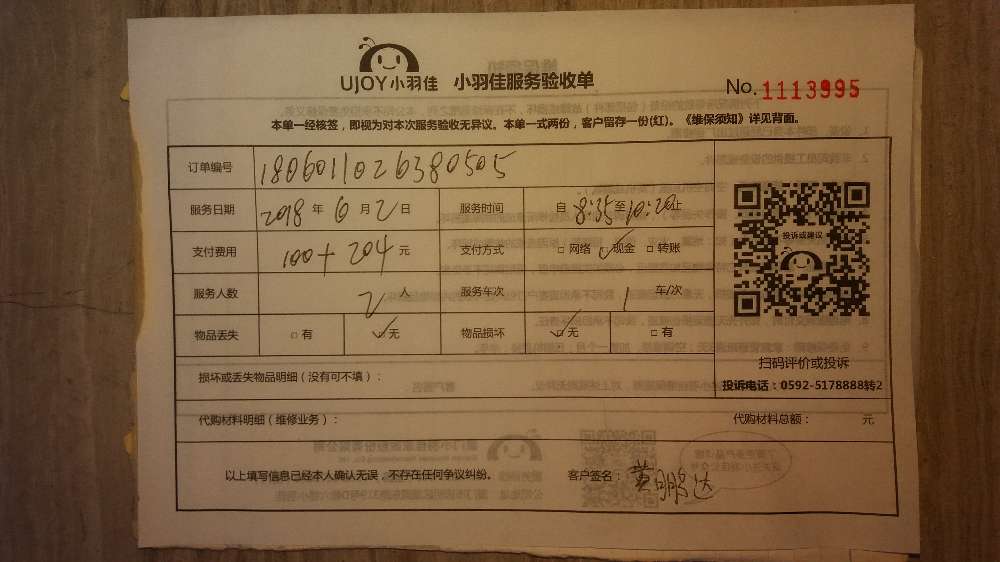 UJOY小羽佳 小羽佳服务验收单
No.1113995
本单一经核签，即视为对本次服务验收无异议。本单一式两份，客户留存一份(红)。《维保须知》详见背面。
订单编号 1806011026380505
服务日期 2018 年 6 月 2 日 服务时间 自 8:35 至 10:20 止
支付费用 100+204 元 支付方式 □ 网络 ☑ 现金 □ 转账
服务人数 2 人 服务车次 1 车/次
物品丢失 □ 有 ☑ 无 物品损坏 ☑ 无 □ 有
投诉或建议
扫码评价或投诉
投诉电话：0592-5178888转2
损坏或丢失物品明细（没有可不填）：
代购材料明细（维修业务）： 代购材料总额： 元
以上填写信息已经本人确认无误，不存在任何争议纠纷。 客户签名：黄鹏达